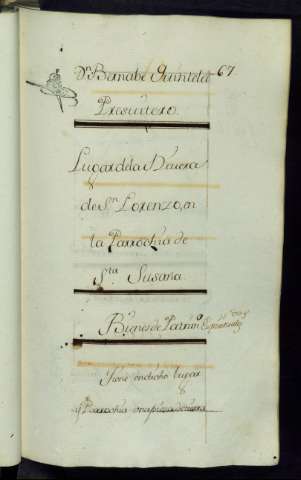 Dn Bernabe Quintela 67.
Presvitero
Lugar de la
de Sn. Lorenzo, en
la Parrochia de
Sta Susana
Bienes de Patrimo
Tiene en dicho lugar
y Parrochia una pieza de tierra